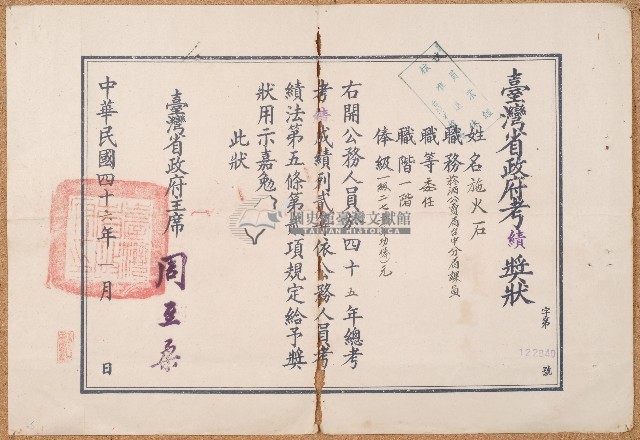 臺灣省政府考績獎狀
字第
122840
號
姓名施火石
職務菸酒公賣局台中分局課員
職等委任
職階一階
俸級一級二七
元
右開公務人員於四十五年總考
考績成績列貳等依公務人員考
績法第五條第貳項規定給予獎
狀用示嘉勉
此狀
臺灣省政府主席
周至柔
中華民國四十六年一月 日
國史館臺灣文獻館
TAIWAN HISTORICA